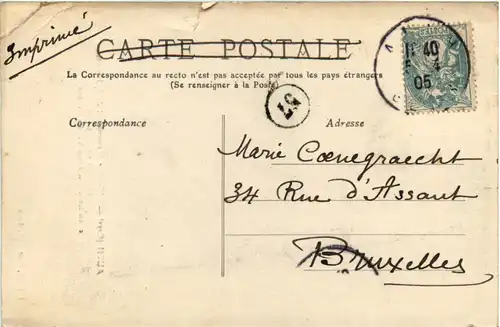 Imprimé
CARTE POSTALE
La Correspondance au recto n'est pas acceptée par tous les pays étrangers
(Se renseigner à la Poste)
57
Correspondance
Adresse
Marie Coenegraecht
34 Rue d'Assaut
Bruxelles
11 40
4
05